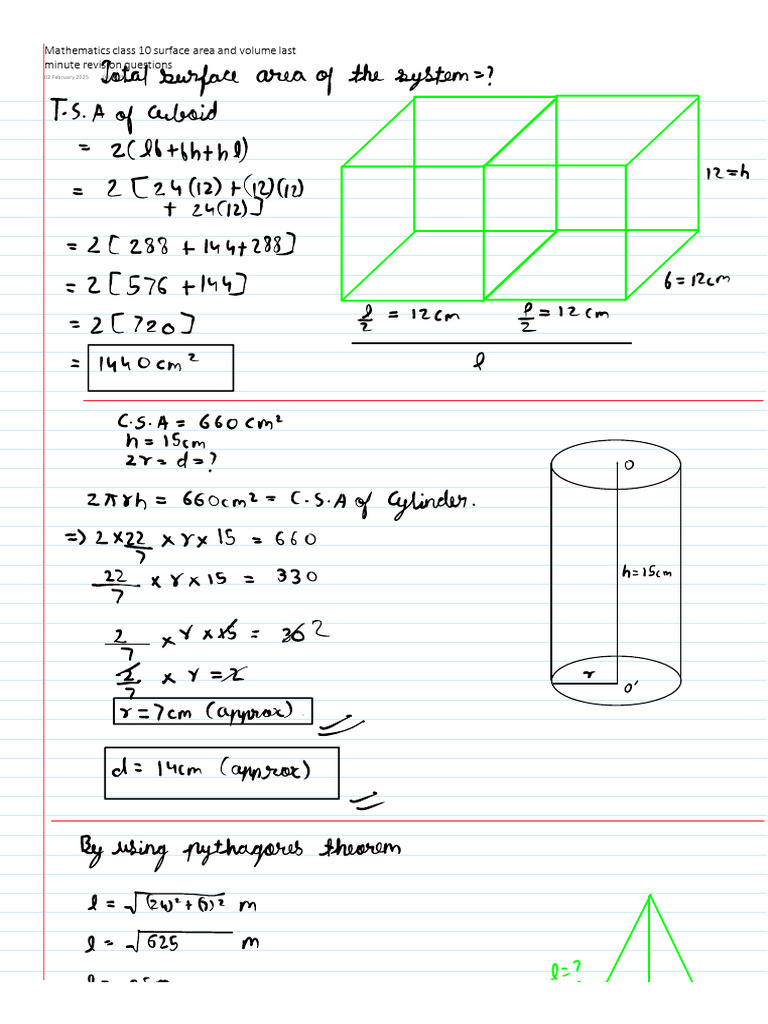 Mathematics class 10 surface area and volume last
minute revision questions
02 February 2025
Total surface area of the system=?
T.S.A of cuboid
= 2(lb+bh+hl)
= 2[24(12)+(12)(12)
+ 24(12)]
= 2[288 + 144+288]
= 2[576 +144]
= 2[720]
= 1440cm²
12=h
b=12cm
l/2 = 12cm
l/2 = 12cm
l
C.S.A = 660cm²
h=15cm
2r= d=?
2πrh = 660cm² = C.S.A of Cylinder.
=) 2×22/7 × r× 15 = 660
22/7 × r×15 = 330
2/7 × r × 15 = 30 2
2/7 × r = 2
r=7cm (approx)
d= 14cm (approx)
O
h=15cm
r
O'
By using pythagores theorem
l = √(24)²+(7)² m
l = √625 m
l=?